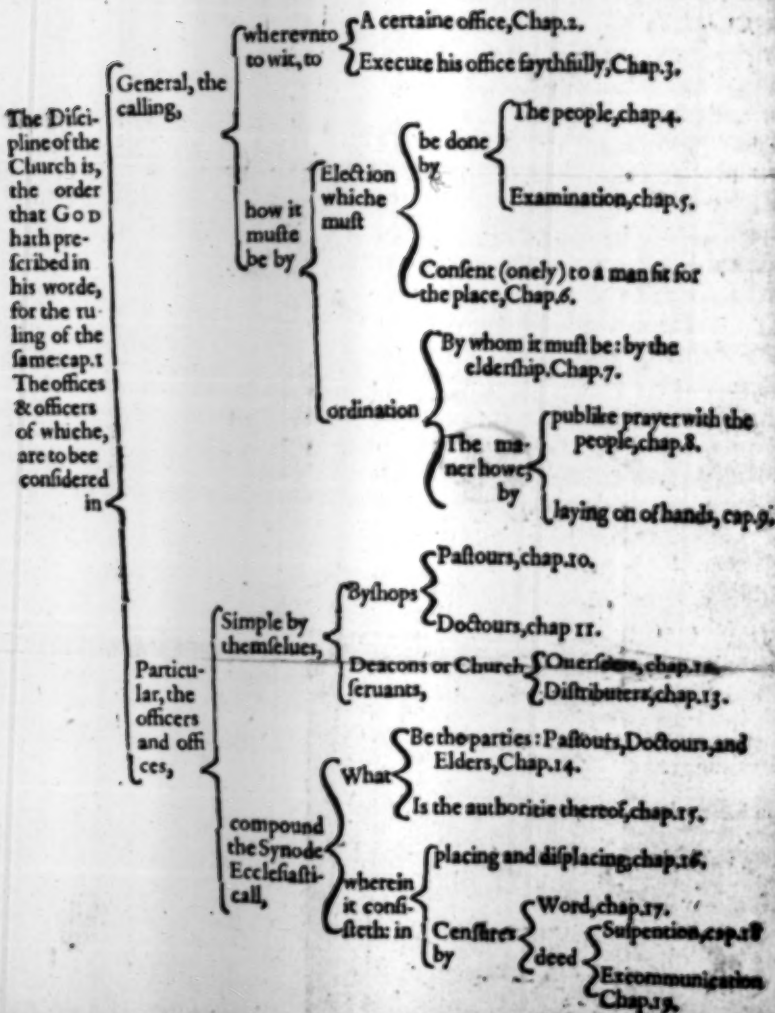 The Disci-
pline of the
Church is,
the order
that GOD
hath pre-
scribed in
his worde,
for the ru-
ling of the
same: cap.1
The offices
& officers
of whiche,
are to bee
considered
in
General, the
calling,
wherevnto
to wit, to
A certaine office, Chap.2.
Execute his office faythfully, Chap.3.
how it
muste
be by
Election
whiche
must
be done
by
The people, chap.4.
Examination, chap.5.
Consent (onely) to a man fit for
the place, Chap.6.
ordination
By whom it must be: by the
eldership. Chap.7.
The ma-
ner howe,
by
publike prayer with the
people, chap.8.
laying on of hands, cap.9.
Particu-
lar, the
officers
and offi
ces,
Simple by
themselues,
Byshops
Pastours, chap.10.
Doctours, chap 11.
Deacons or Church
seruants,
Ouerseers, chap.12.
Distributers, chap.13.
compound
the Synode
Ecclesiasti-
call,
What
Be the parties: Pastours, Doctours, and
Elders, Chap.14.
Is the authoritie thereof, chap.15.
wherein
it consi-
steth: in
placing and displacing, chap.16.
Censures
by
Word, chap.17.
deed
Suspention, cap.18
Excommunication
Chap.19.